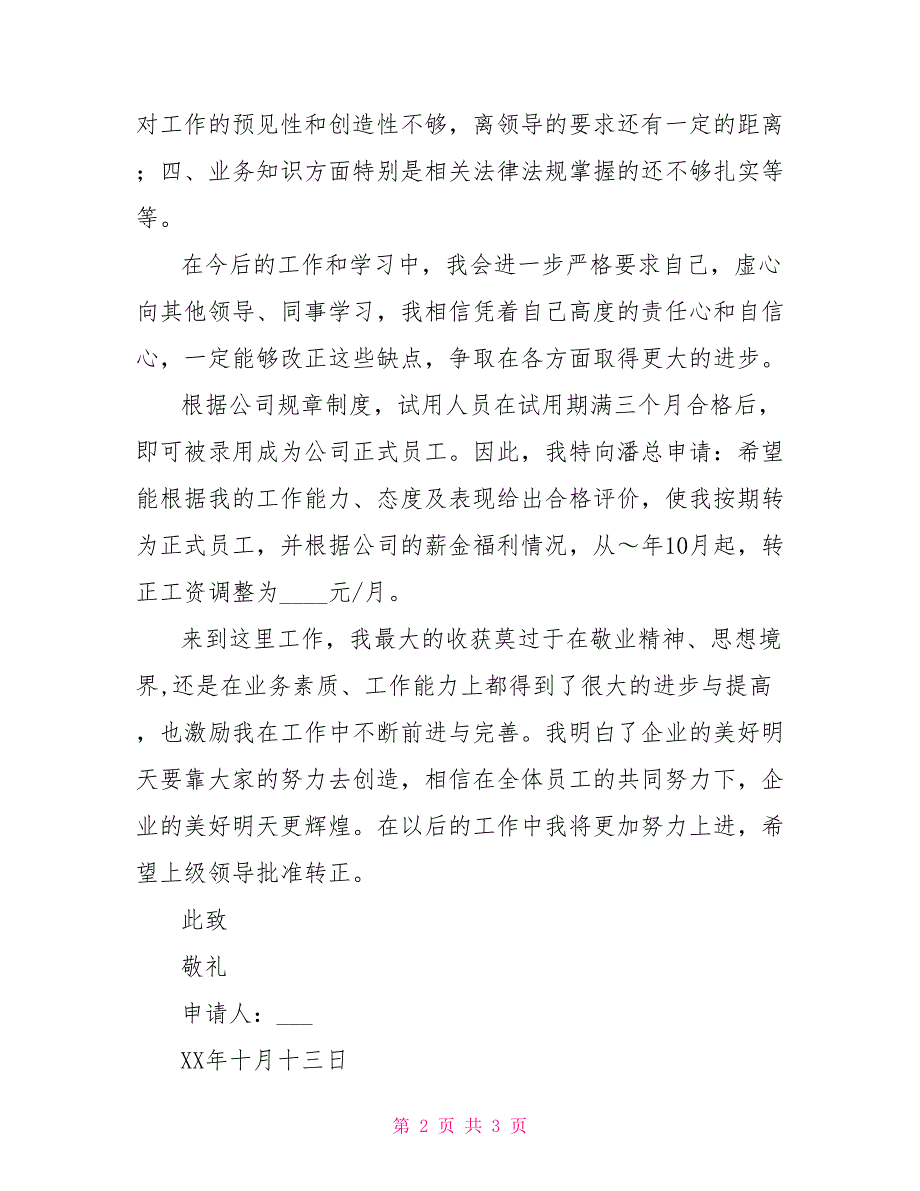 对工作的预见性和创造性不够，离领导的要求还有一定的距离
；四、业务知识方面特别是相关法律法规掌握的还不够扎实等
等。
在今后的工作和学习中，我会进一步严格要求自己，虚心
向其他领导、同事学习，我相信凭着自己高度的责任心和自信
心，一定能够改正这些缺点，争取在各方面取得更大的进步。
根据公司规章制度，试用人员在试用期满三个月合格后，
即可被录用成为公司正式员工。因此，我特向潘总申请：希望
能根据我的工作能力、态度及表现给出合格评价，使我按期转
为正式员工，并根据公司的薪金福利情况，从～年10月起，转
正工资调整为____元/月。
来到这里工作，我最大的收获莫过于在敬业精神、思想境
界,还是在业务素质、工作能力上都得到了很大的进步与提高
，也激励我在工作中不断前进与完善。我明白了企业的美好明
天要靠大家的努力去创造，相信在全体员工的共同努力下，企
业的美好明天更辉煌。在以后的工作中我将更加努力上进，希
望上级领导批准转正。
此致
敬礼
申请人：___
XX年十月十三日
第 2 页 共 3 页